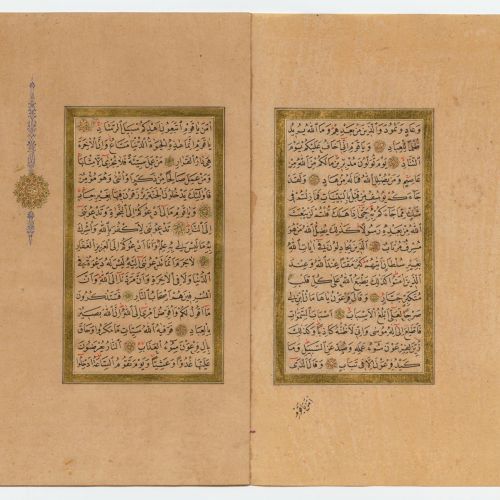 وَعَادٍ وَثَمُودَ وَالَّذِينَ مِنْ بَعْدِهِمْ وَمَا اللّٰهُ يُرِيدُ
ظُلْمًا لِلْعِبَادِ وَيَا قَوْمِ اِنِّي اَخَافُ عَلَيْكُمْ يَوْمَ
التَّنَادِ يَوْمَ تُوَلُّونَ مُدْبِرِينَ مَا لَكُمْ مِنَ اللّٰهِ مِنْ
عَاصِمٍ وَمَنْ يُضْلِلِ اللّٰهُ فَمَا لَهُ مِنْ هَادٍ وَلَقَدْ
جَاءَكُمْ يُوسُفُ مِنْ قَبْلُ بِالْبَيِّنَاتِ فَمَا زِلْتُمْ فِي
شَكٍّ مِمَّا جَاءَكُمْ بِهِ حَتّٰى اِذَا هَلَكَ قُلْتُمْ لَنْ يَبْعَثَ
اللّٰهُ مِنْ بَعْدِهِ رَسُولًا كَذٰلِكَ يُضِلُّ اللّٰهُ مَنْ هُوَ
مُسْرِفٌ مُرْتَابٌ الَّذِينَ يُجَادِلُونَ فِي اٰيَاتِ اللّٰهِ
بِغَيْرِ سُلْطَانٍ اَتٰيهُمْ كَبُرَ مَقْتًا عِنْدَ اللّٰهِ وَعِنْدَ
الَّذِينَ اٰمَنُوا كَذٰلِكَ يَطْبَعُ اللّٰهُ عَلٰى كُلِّ قَلْبِ
مُتَكَبِّرٍ جَبَّارٍ وَقَالَ فِرْعَوْنُ يَا هَامَانُ ابْنِ لِي
صَرْحًا لَعَلِّي اَبْلُغُ الْاَسْبَابَ اَسْبَابَ السَّمٰوَاتِ
فَاَطَّلِعَ اِلٰى اِلٰهِ مُوسٰى وَاِنِّي لَاَظُنُّهُ كَاذِبًا وَكَذٰلِكَ
زُيِّنَ لِفِرْعَوْنَ سُوءُ عَمَلِهِ وَصُدَّ عَنِ السَّبِيلِ وَمَا
كَيْدُ فِرْعَوْنَ اِلَّا فِي تَبَابٍ وَقَالَ الَّذِي
اٰمَنَ يَا قَوْمِ
اٰمَنَ يَا قَوْمِ اتَّبِعُونِ اَهْدِكُمْ سَبِيلَ الرَّشَادِ
يَا قَوْمِ اِنَّمَا هٰذِهِ الْحَيٰوةُ الدُّنْيَا مَتَاعٌ وَاِنَّ الْاٰخِرَةَ
هِيَ دَارُ الْقَرَارِ مَنْ عَمِلَ سَيِّئَةً فَلَا يُجْزٰى اِلَّا مِثْلَهَا
وَمَنْ عَمِلَ صَالِحًا مِنْ ذَكَرٍ اَوْ اُنْثٰى وَهُوَ مُؤْمِنٌ
فَاُولٰئِكَ يَدْخُلُونَ الْجَنَّةَ يُرْزَقُونَ فِيهَا بِغَيْرِ حِسَابٍ
وَيَا قَوْمِ مَا لِي اَدْعُوكُمْ اِلَى النَّجٰوةِ وَتَدْعُونَنِي
اِلَى النَّارِ تَدْعُونَنِي لِاَكْفُرَ بِاللّٰهِ وَاُشْرِكَ
بِهِ مَا لَيْسَ لِي بِهِ عِلْمٌ وَاَنَا اَدْعُوكُمْ اِلَى الْعَزِيزِ الْغَفَّارِ
لَا جَرَمَ اَنَّمَا تَدْعُونَنِي اِلَيْهِ لَيْسَ لَهُ دَعْوَةٌ فِي
الدُّنْيَا وَلَا فِي الْاٰخِرَةِ وَاَنَّ مَرَدَّنَا اِلَى اللّٰهِ وَاَنَّ
الْمُسْرِفِينَ هُمْ اَصْحَابُ النَّارِ فَسَتَذْكُرُونَ
مَا اَقُولُ لَكُمْ وَاُفَوِّضُ اَمْرِي اِلَى اللّٰهِ اِنَّ اللّٰهَ بَصِيرٌ
بِالْعِبَادِ فَوَقٰيهُ اللّٰهُ سَيِّئَاتِ مَا مَكَرُوا وَحَاقَ
بِاٰلِ فِرْعَوْنَ سُوءُ الْعَذَابِ النَّارُ يُعْرَضُونَ
عَلَيْهَا غُدُوًّا وَعَشِيًّا وَيَوْمَ تَقُومُ السَّاعَةُ اَدْخِلُوا